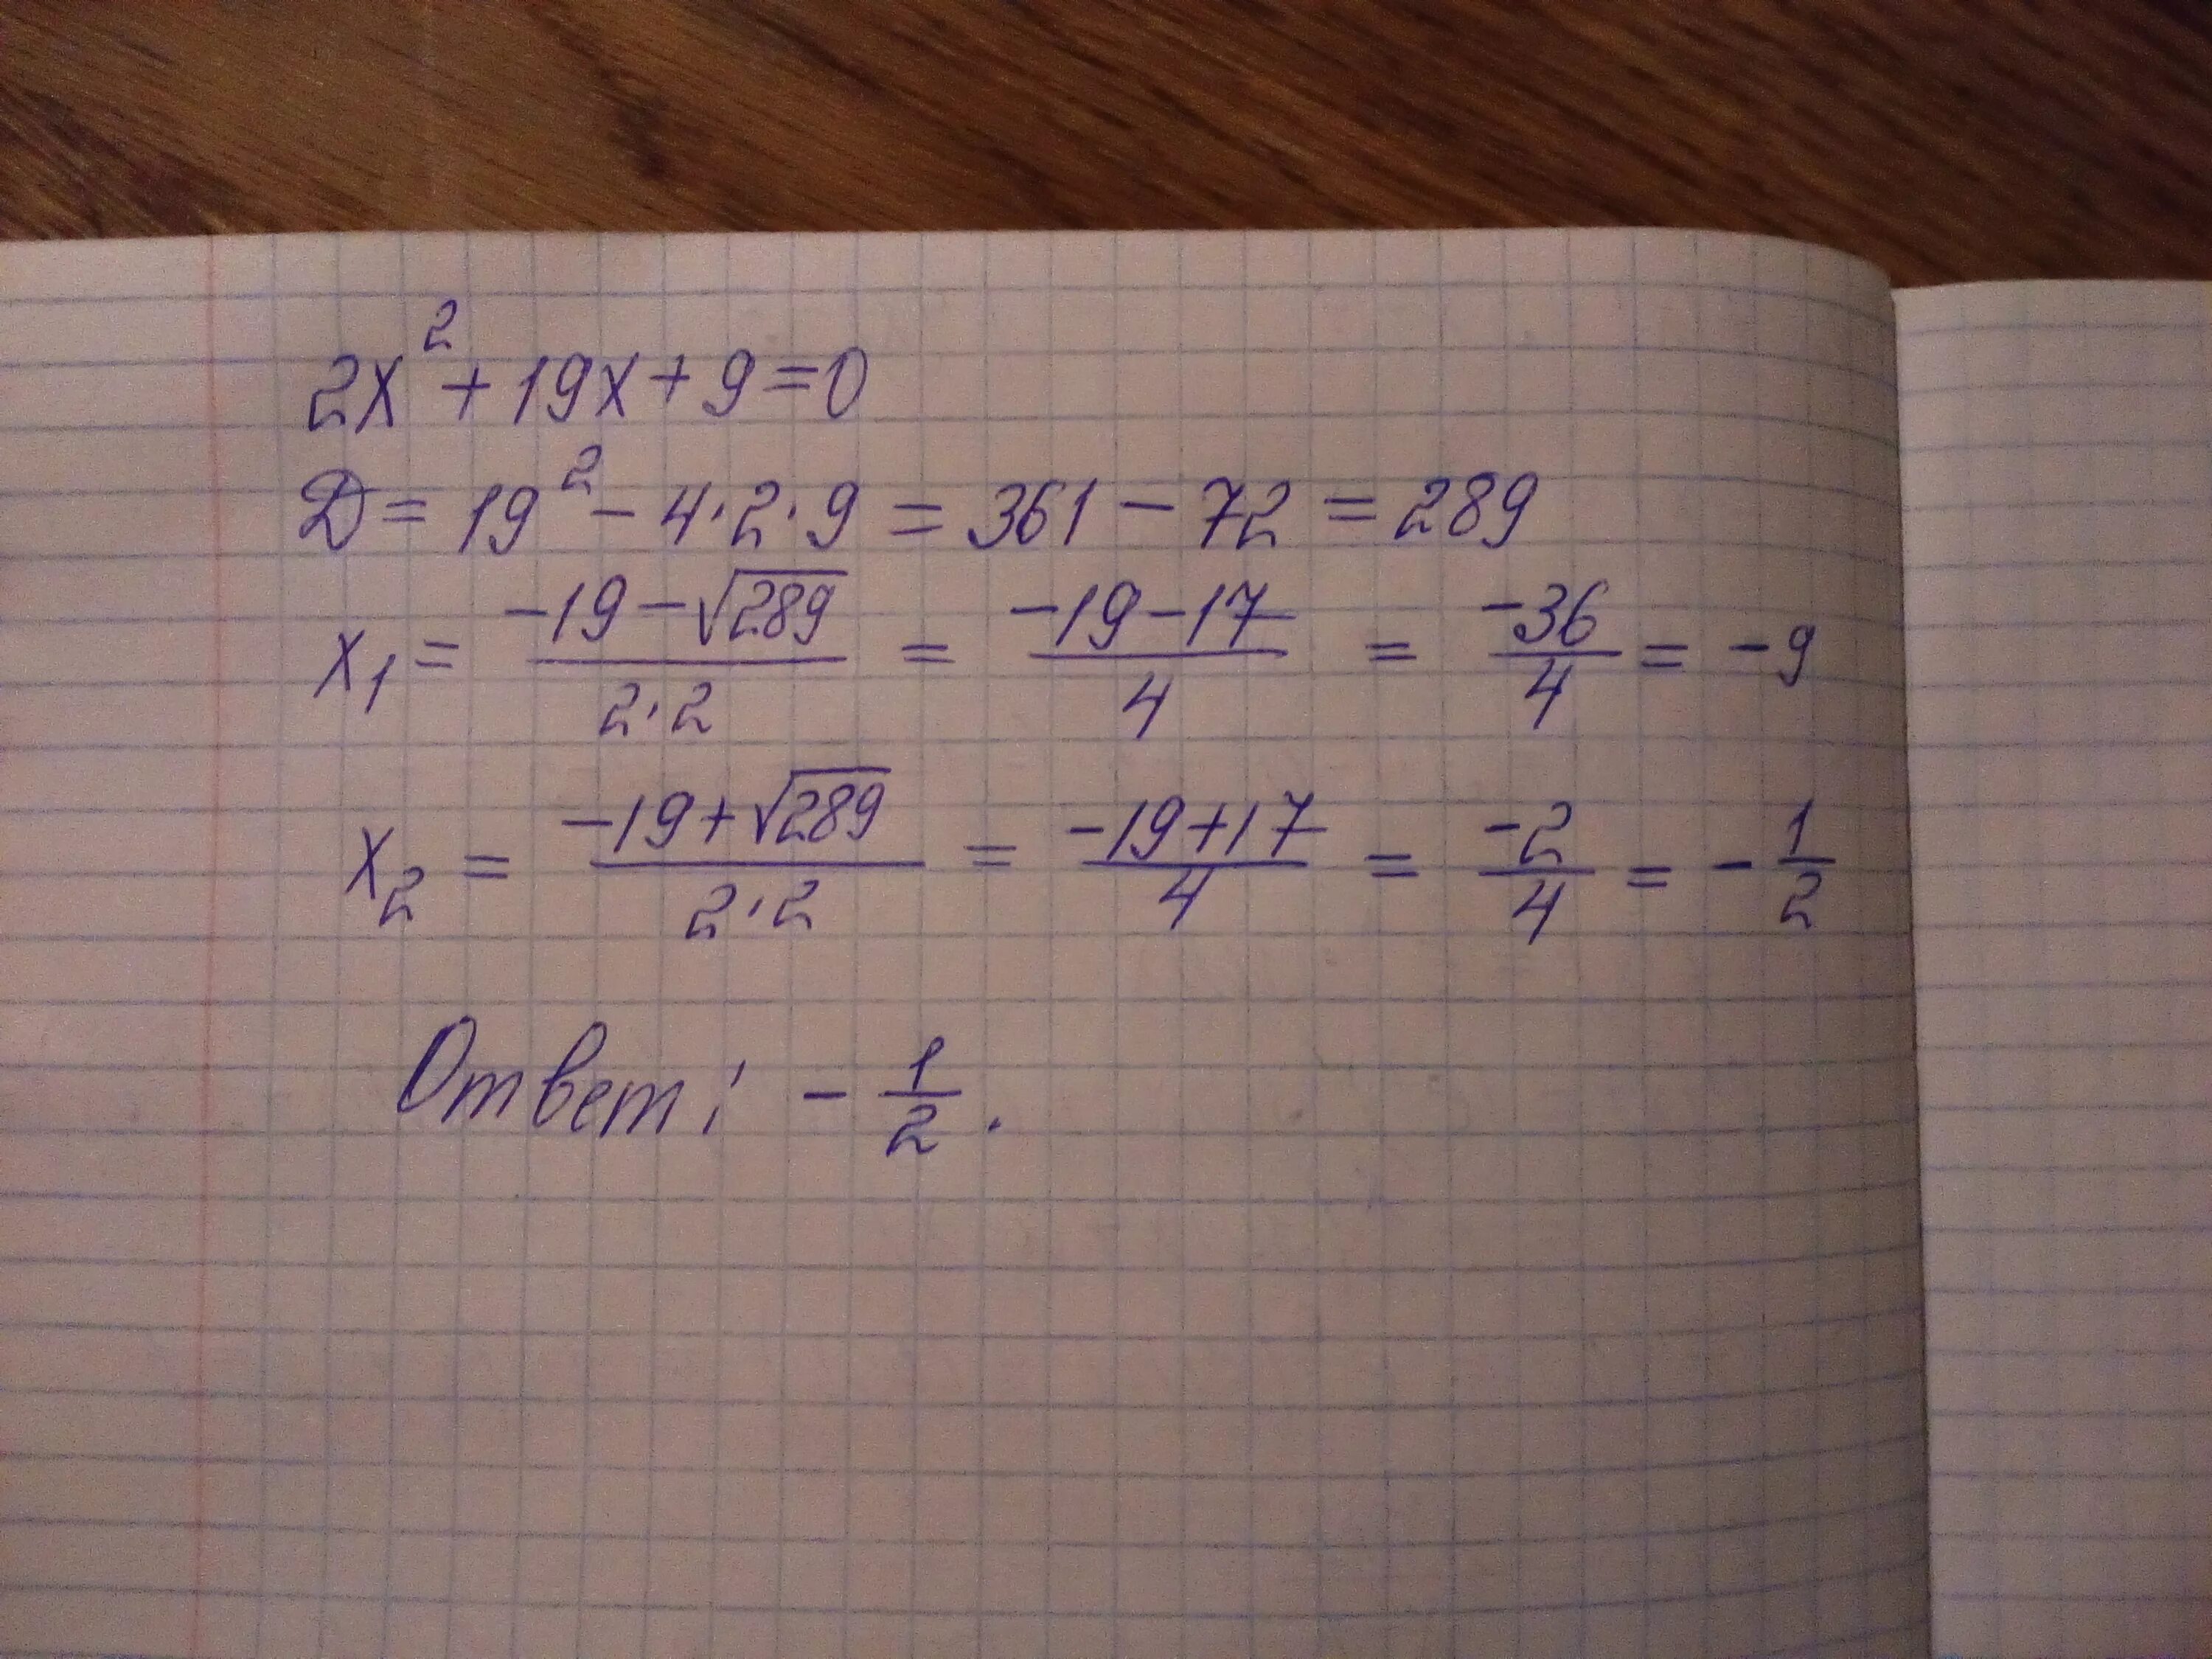 2x² + 19x + 9 = 0
D = 19² - 4·2·9 = 361 - 72 = 289
x₁ = (-19 - √289)/(2·2) = (-19-17)/4 = -36/4 = -9
x₂ = (-19 + √289)/(2·2) = (-19+17)/4 = -2/4 = -1/2
Ответ: -1/2.